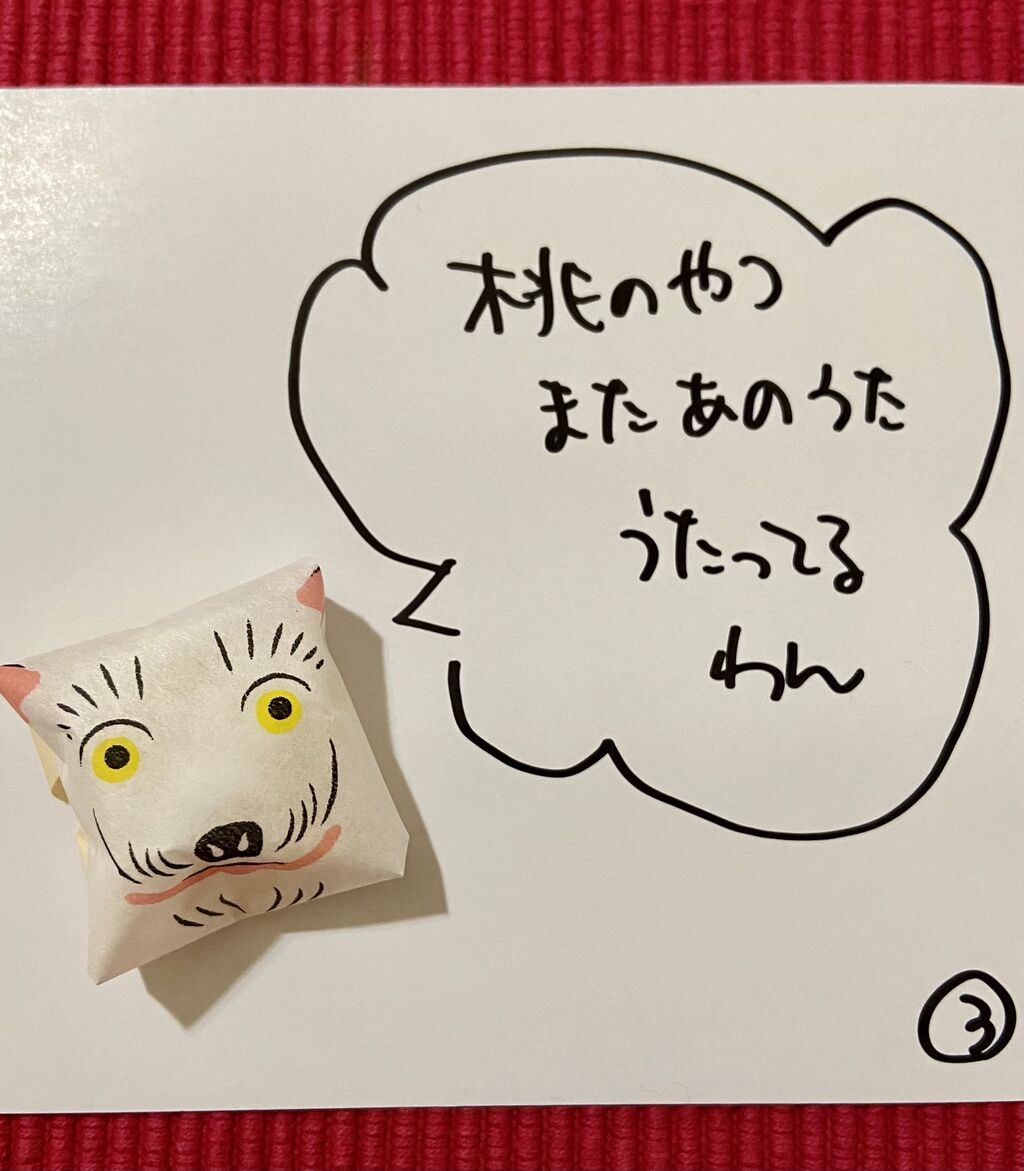 桃のやつ
またあのうた
うたってる
わん
③